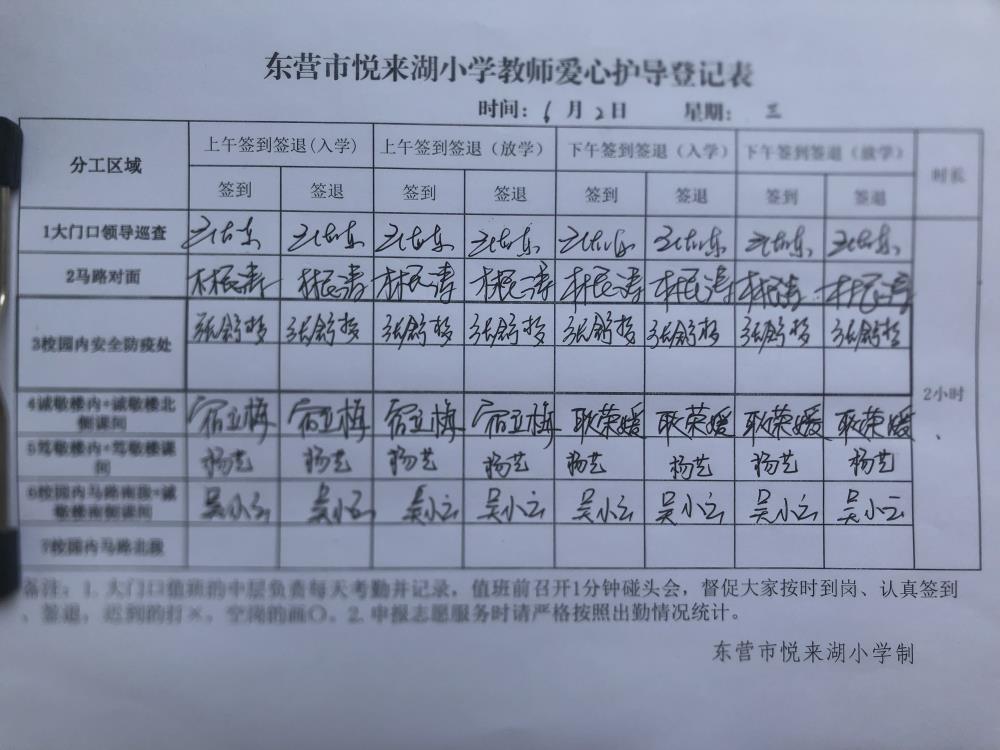 东营市悦来湖小学教师爱心护导登记表
时间：6月2日 星期：三
分工区域 上午签到签退(入学) 上午签到签退（放学） 下午签到签退（入学） 下午签到签退（放学） 时长
签到 签退 签到 签退 签到 签退 签到 签退
1大门口领导巡查
2马路对面 林民涛 林民涛 林民涛 林民涛 林民涛 林民涛 林民涛 林民涛
3校园内安全防疫处 张舒梦 张舒梦 张舒梦 张舒梦 张舒梦 张舒梦 张舒梦 张舒梦
2小时
4诚敬楼内+诚敬楼北侧课间 宿立梅 宿立梅 宿立梅 宿立梅 耿荣媛 耿荣媛 耿荣媛 耿荣媛
5笃敬楼内+笃敬楼课间 杨艺 杨艺 杨艺 杨艺 杨艺 杨艺 杨艺 杨艺
6校园内马路南段+诚敬楼南侧课间 吴小云 吴小云 吴小云 吴小云 吴小云 吴小云 吴小云 吴小云
7校园内马路北段
备注：1. 大门口值班的中层负责每天考勤并记录，值班前召开1分钟碰头会，督促大家按时到岗、认真签到
、签退，迟到的打×，空岗的画〇。2. 申报志愿服务时请严格按照出勤情况统计。
东营市悦来湖小学制